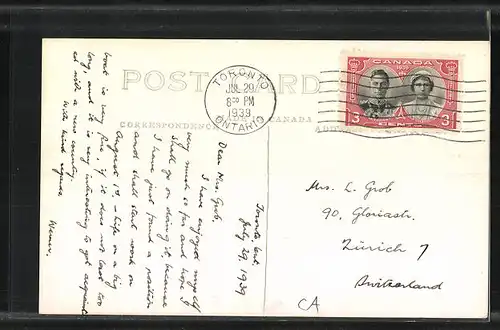 POST CARD
CORRESPONDENCE
MADE IN CANADA
ADDRESS
TORONTO
JUL 29
8 00 PM
1939
ONTARIO
CANADA
1939
3 CENTS 3
Toronto, Ont.
July 29, 1939
Dear Mrs. Grob,
I have enjoyed myself
very much so far and hope I
shall go on doing it, because
I have just found a position
and shall start work on
August 1st - life on a big
boat is very fine, if it does not last too
long, and it is very interesting to get acquaint-
ed with a new country.
With kind regards
Werner.
Mrs. L. Grob
90, Gloriastr.
Zürich 7
Switzerland
CA